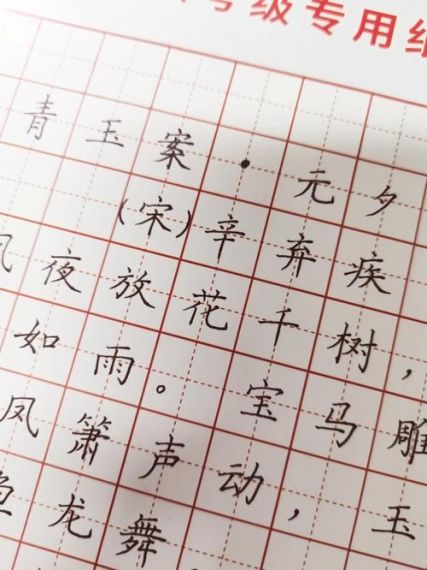 级专用纸
青玉案·元夕
(宋)辛弃疾
风夜放花千树,
如雨。宝马雕
凤箫声动,玉
鱼龙舞